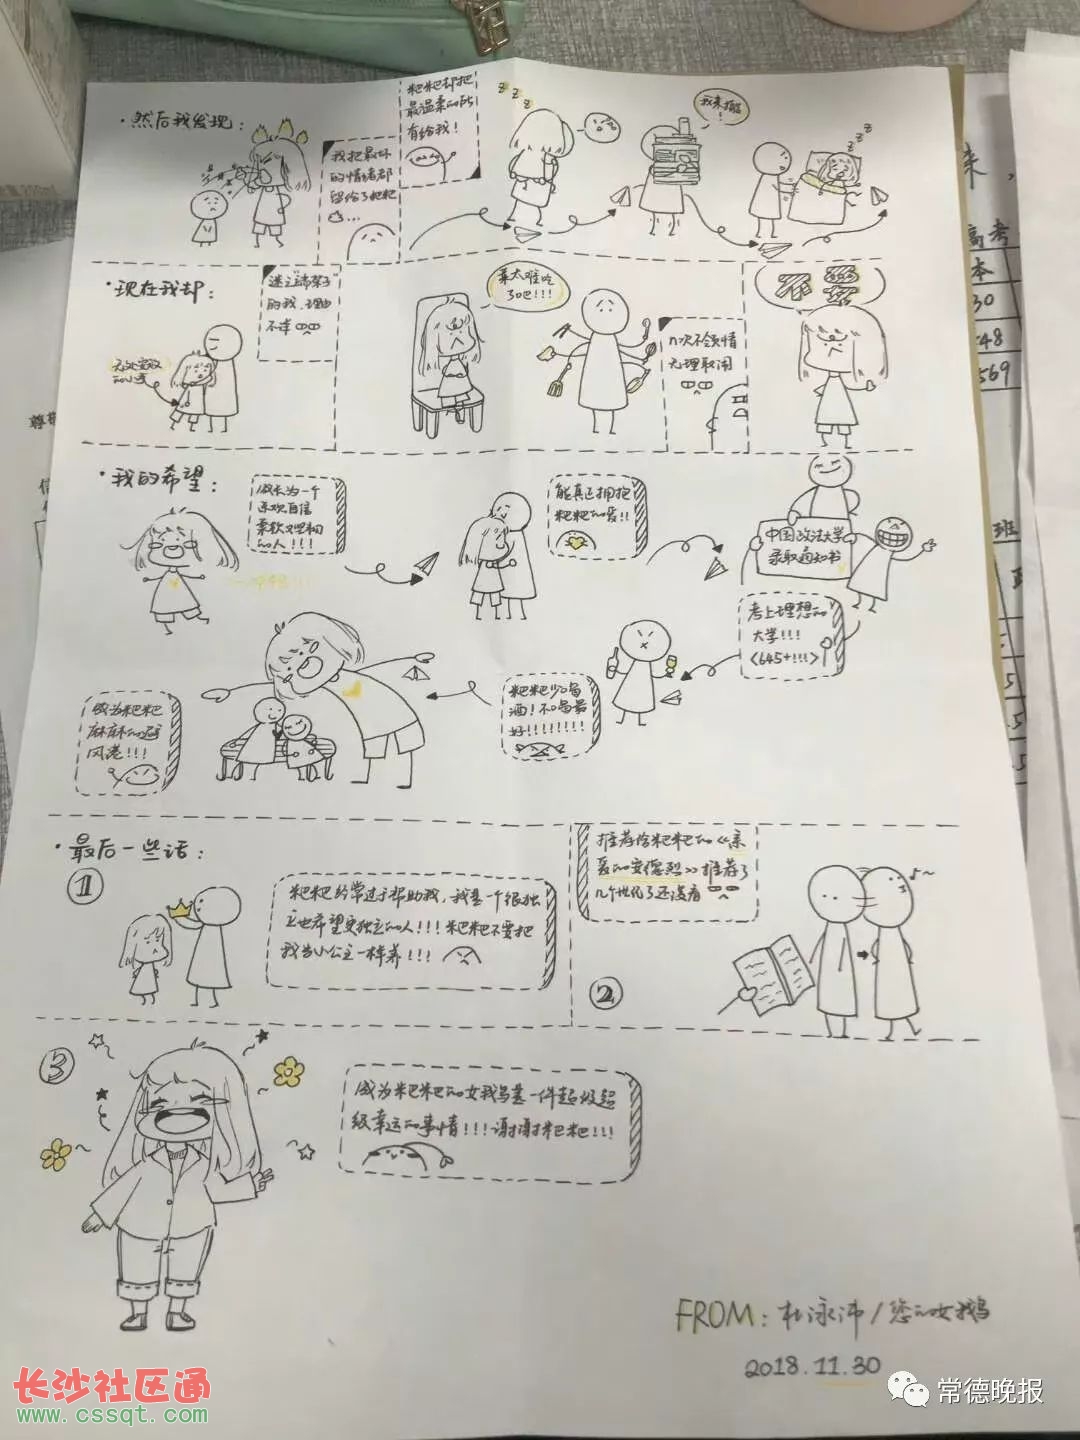 ·然后我发现:
我把最坏
的情绪都
留给了粑粑
粑粑却把
最温柔的所
有给我!
z z z
我来抱!
z z z
·现在我却:
的我,理由
不详
菜太难吃
了吧!!!
n次不领情
无理取闹
不要
·我的希望:
成长为一个
乐观自信
柔软又坚韧
的人!!!
能真正拥抱
粑粑的爱!!
中国政法大学
录取通知书
考上理想的
大学!!!
<645+!!!>
粑粑少喝
酒!不喝最
好!!!!!!!!
成为粑粑
麻麻的避
风港!!!
·最后一些话:
①
粑粑经常过于帮助我,我是一个很独
立也希望更独立的人!!!粑粑不要把
我当小公主一样养!!!
推荐给粑粑的《亲
爱的安德烈》推荐了
几个世纪了还没看
②
③
成为粑粑的女鹅是一件超级超
级幸运的事情!!!谢谢粑粑!!!
FROM: 杜泳沛/您的女鹅
2018.11.30
高考
本
30
48
569
班
长沙社区通
www.cssqt.com
常德晚报